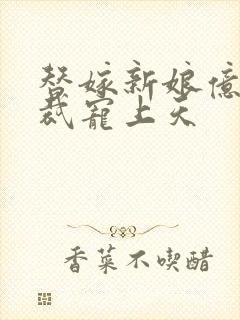 替嫁新娘億
裁寵上天
香菜不喫醋